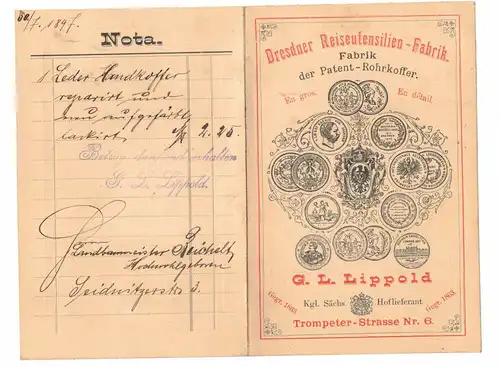 30/7. 1897.
Nota.
1 Leder Handkoffer
reparirt und
neu aufgefärbt,
lackirt M 2.25.
Betrag dankend erhalten
G. L. Lippold.
Landbaumeister Reichelt
Hochwohlgeboren
Seidnitzerstr 3.
Dresdner Reiseutensilien-Fabrik.
Fabrik
der Patent-Rohrkoffer.
En gros. En détail.
G. L. Lippold
Gegr. 1863 Kgl. Sächs. Hoflieferant Gegr. 1863
Trompeter-Strasse Nr. 6.